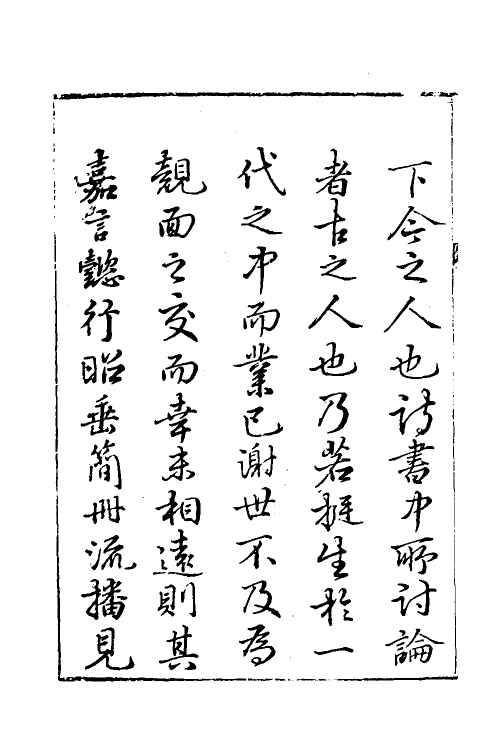 下今之人也詩書中所討論
者古之人也乃若挺生於一
代之中而業已謝世不及為
覿面之交而幸未相遠則其
嘉言懿行昭垂簡冊流播見